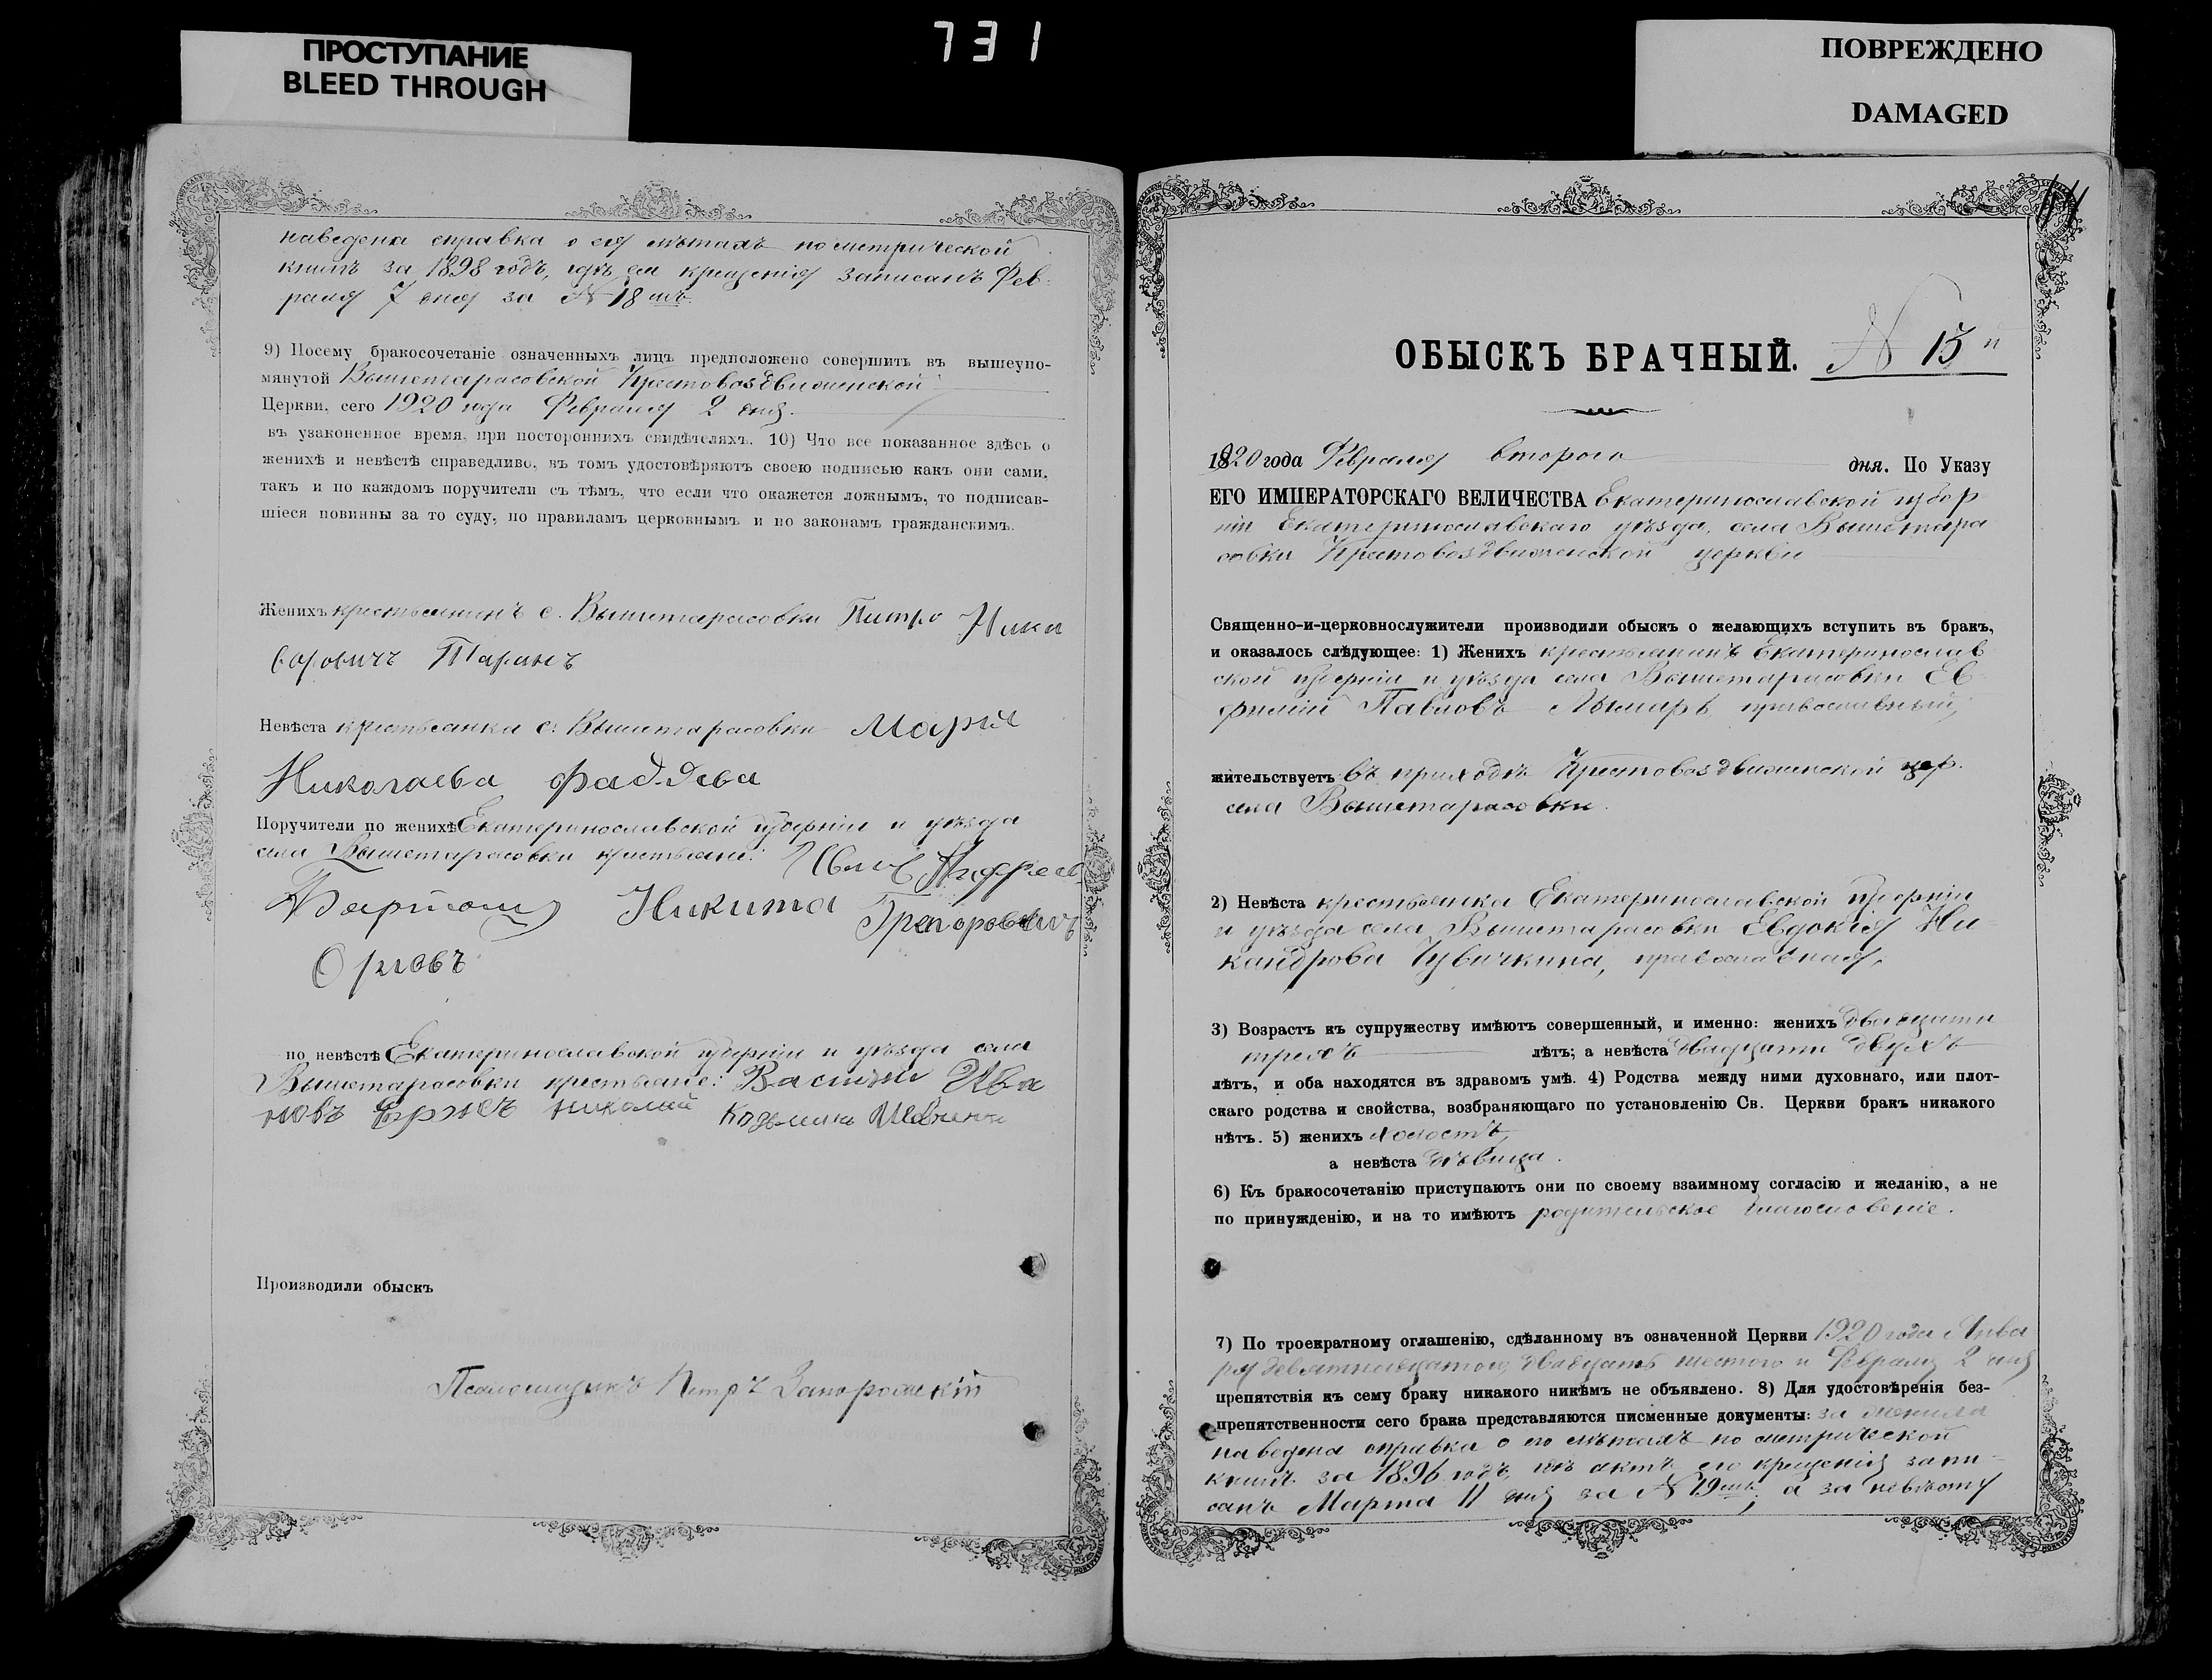 731
ПРОСТУПАНИЕ
BLEED THROUGH
ПОВРЕЖДЕНО
DAMAGED
наведена справка о ея лѣтахъ по метрической
книгѣ за 1898 годъ, гдѣ ея крещенія записанъ Фев-
раля 7 дня за № 18 мъ.
9) Посему бракосочетаніе означенныхъ лицъ предположено совершить въ вышеупо-
мянутой Вышетарасовской Крестовоздвиженской
Церкви, сего 1920 года Февраля 2 дня.
въ узаконенное время, при постороннихъ свидѣтеляхъ. 10) Что все показанное здѣсь о
женихѣ и невѣстѣ справедливо, въ томъ удостовѣряютъ своею подписью какъ они сами,
такъ и по каждомъ поручители съ тѣмъ, что если что окажется ложнымъ, то подписав-
шіеся повинны за то суду, по правиламъ церковнымъ и по законамъ гражданскимъ.
Женихъ крестьянинъ с. Вышетарасовки Питро
Таранъ
Невѣста крестьянка с. Вышетарасовки Мария
Николаева Фаддева
Поручители по женихѣ Екатеринославской губерніи и уѣзда
села Вышетарасовки крестьяне:
Никита Грегоровичъ
Орловъ
по невѣстѣ Екатеринославской губерніи и уѣзда села
Вышетарасовки крестьяне: Василий Ива
новъ Николай
Производили обыскъ
Псаломщикъ Петръ Запорожскій
ОБЫСКЪ БРАЧНЫЙ. № 13 й
1920 года Февраля второго дня. По Указу
ЕГО ИМПЕРАТОРСКАГО ВЕЛИЧЕСТВА Екатеринославской губер
ніи Екатеринославскаго уѣзда, села Вышетара
совки Крестовоздвиженской церкви
Священно-и-церковнослужители производили обыскъ о желающихъ вступить въ бракъ,
и оказалось слѣдующее: 1) Женихъ крестьянинъ Екатеринослав
ской губерніи и уѣзда села Вышетарасовки Ев-
фимій Павловъ Лымарь православный,
жительствуетъ въ приходѣ Крестовоздвиженской цер.
села Вышетарасовки.
2) Невѣста крестьянка Екатеринославской губерніи
и уѣзда села Вышетарасовки Евдокія Ни-
кандрова Чувичкина, православная,
3) Возрастъ къ супружеству имѣютъ совершенный, и именно: женихъ двадцати
трехъ лѣтъ; а невѣста двадцати двухъ
лѣтъ, и оба находятся въ здравомъ умѣ. 4) Родства между ними духовнаго, или плот-
скаго родства и свойства, возбраняющаго по установленію Св. Церкви бракъ никакого
нѣтъ. 5) женихъ холостъ,
а невѣста дѣвица.
6) Къ бракосочетанію приступаютъ они по своему взаимному согласію и желанію, а не
по принужденію, и на то имѣютъ родительское благословеніе.
7) По троекратному оглашенію, сдѣланному въ означенной Церкви 1920 года Янва
ря девятнадцатого, двадцать шестого и Февраля 2 дня
препятствія къ сему браку никакого никѣмъ не объявлено. 8) Для удостовѣренія без-
препятственности сего брака представляются писменные документы: за жениха
наведена справка о его лѣтахъ по метрической
книгѣ за 1896 годъ, гдѣ актъ его крещенія запи-
санъ Марта 11 дня за № 19 мъ; а за невѣсту